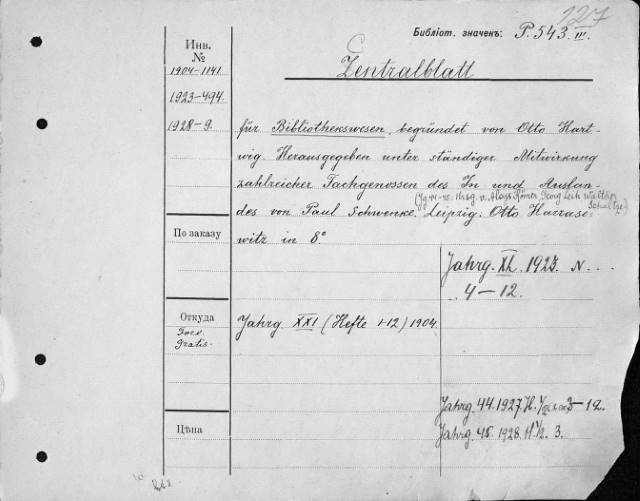 127
Библіот. значекъ: P. 543. III.
C
Zentralblatt
Инв.
№
1904–1141.
1923–494.
1928–9.
für Bibliothekswesen, begründet von Otto Hart-
wig. Herausgegeben unter ständiger Mitwirkung
zahlreicher Fachgenossen des In und Auslan-
Georg Leih
des von Paul Schwenke. Leipzig: Otto Harraso-
witz in 8°
По заказу
Jahrg. XL. 1923. N...
4–12.
Откуда
gratis.
Jahrg XXI (Hefte 1-12) 1904.
Jahrg. 44. 1927. H. 3–12.
Цѣна
Jahrg. 45. 1928. H. 1/2. 3.